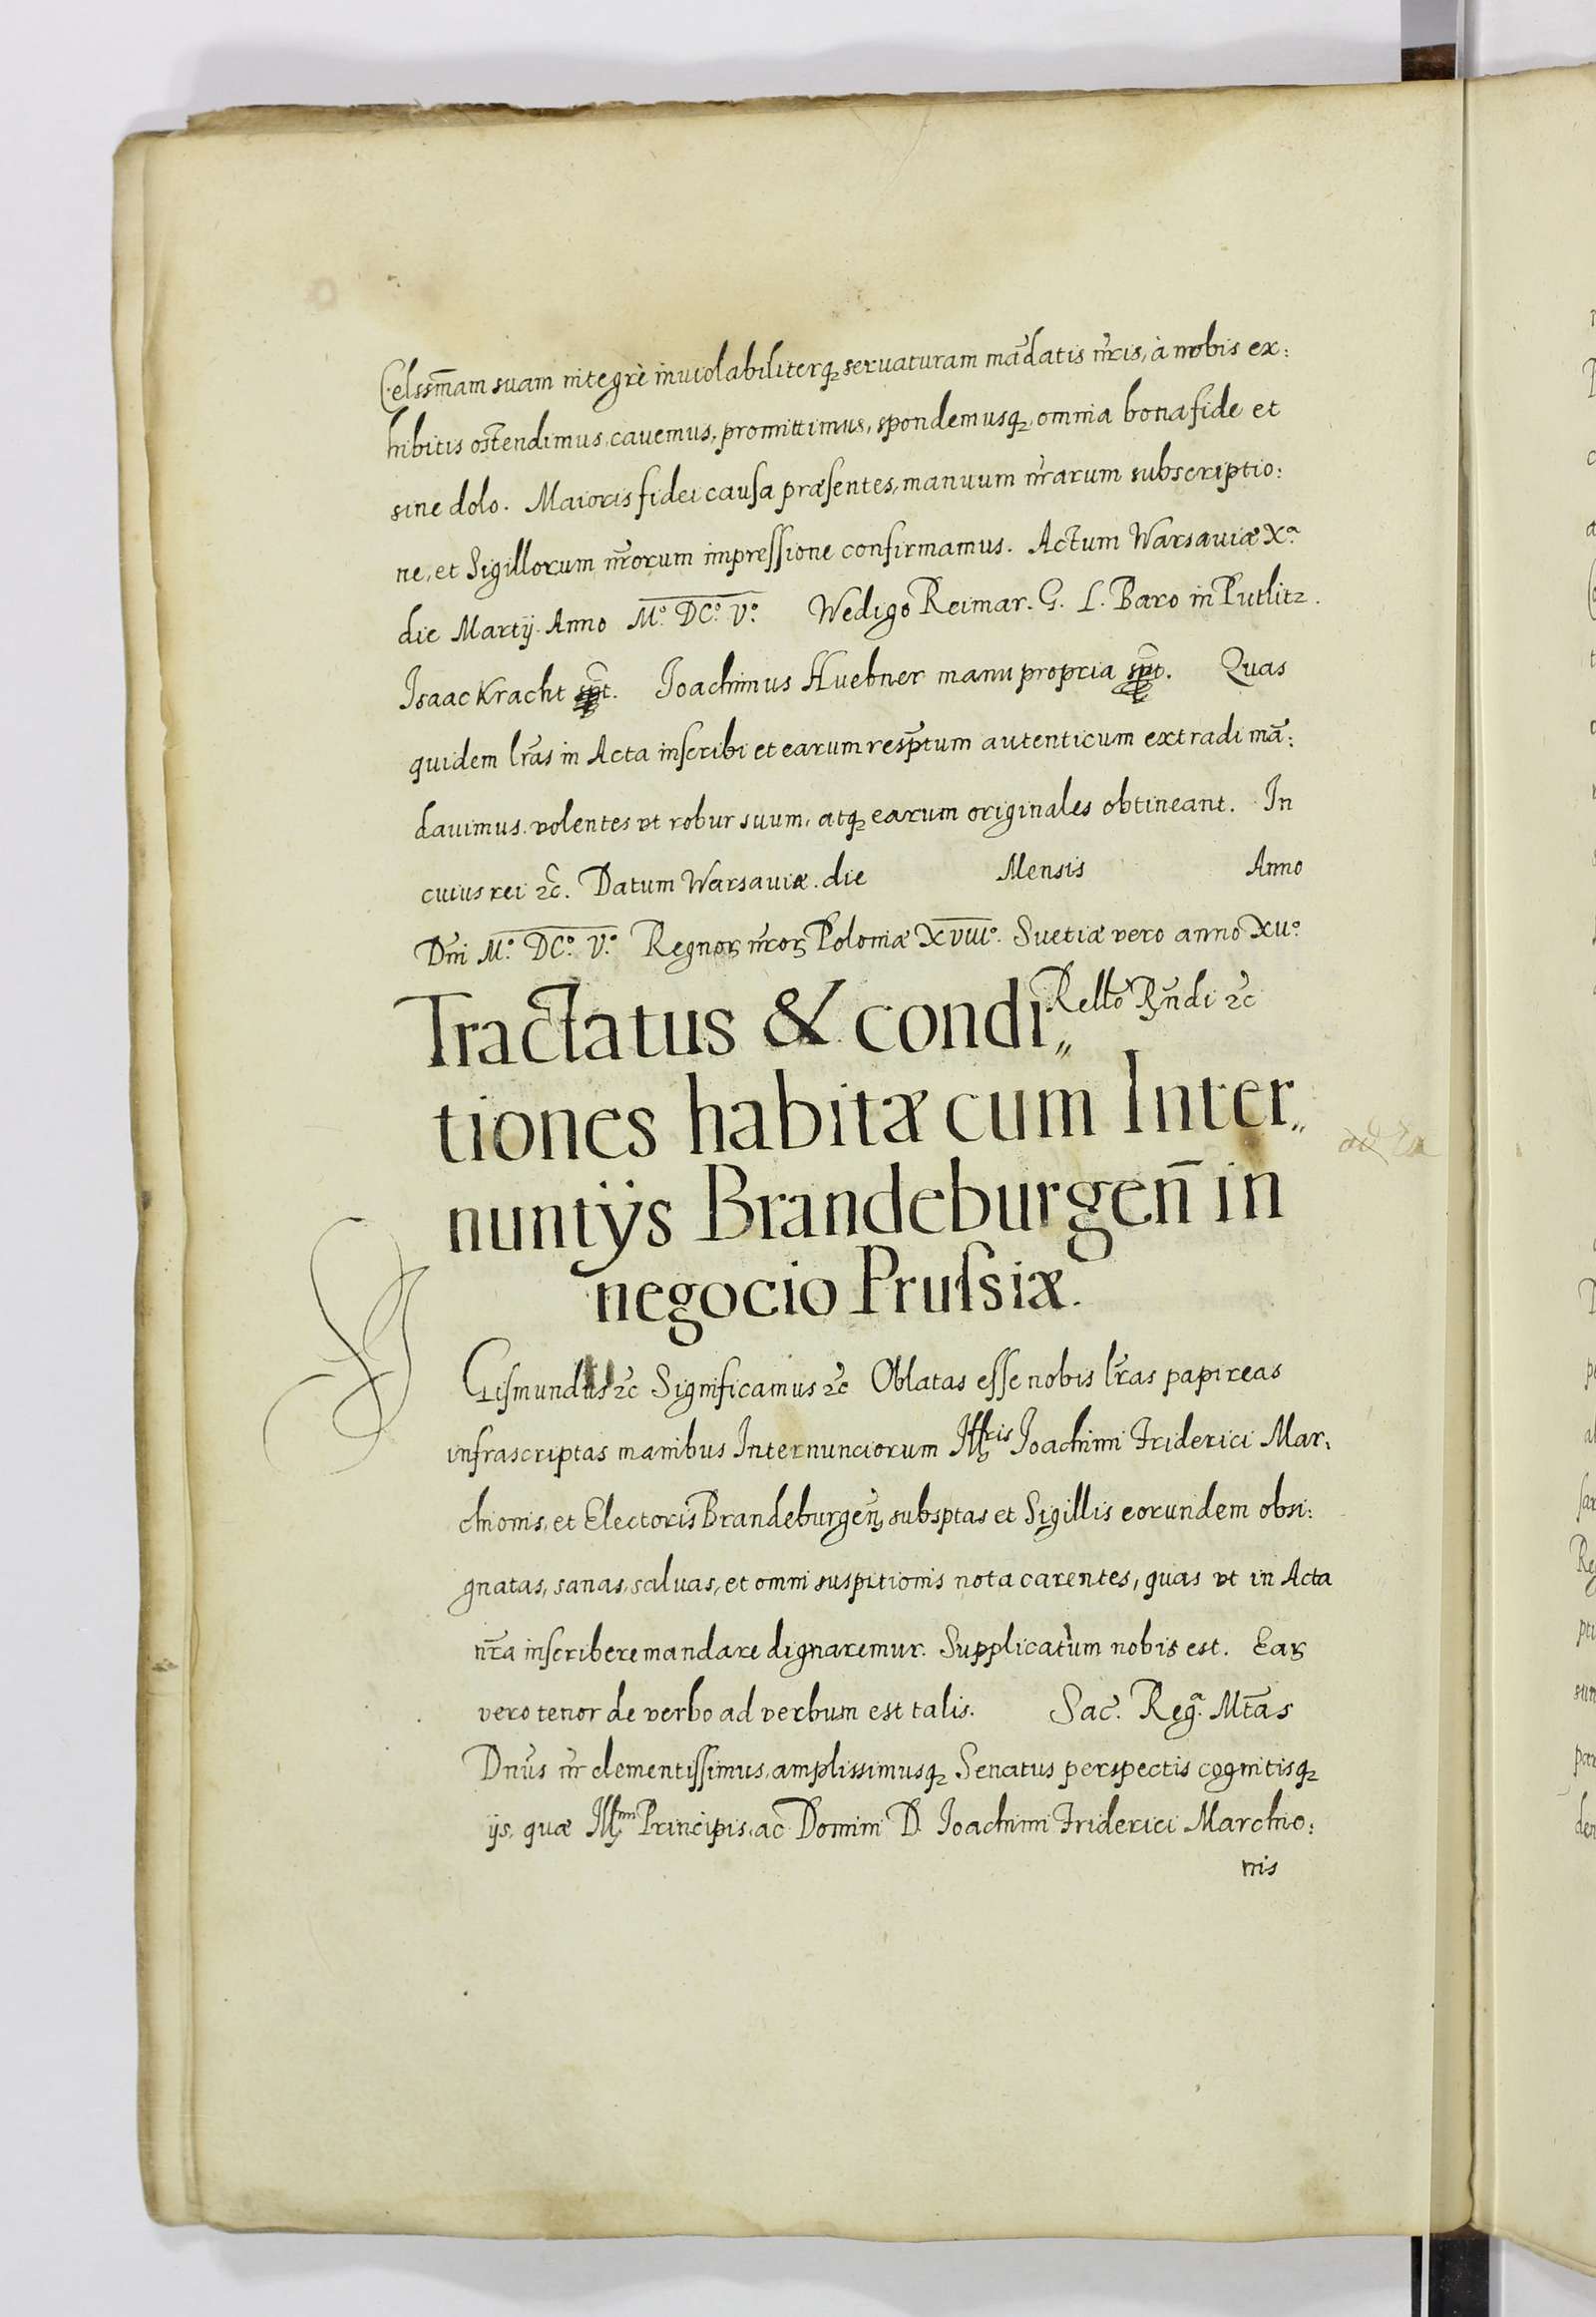 Celssm̃am suam integrè inuiolabiliterq; seruaturam mãdatis nr̃is, à nobis ex:
hibitis ostendimus, cauemus, promittimus, spondemusq;, omnia bona fide et
sine dolo. Maioris fidei causa præsentes, manuum nr̃arum subscriptio:
ne, et Sigillorum nr̃orum impressione confirmamus. Actum Warsauiæ Xª
die Martij Anno M.º DC.º V.º Wedigo Reimar. G. L. Baro in Putlitz.
Isaac Kracht spt. Joachimus Huebner manu propria spt. Quas
quidem lr̃as in Acta inscribi et earum resp̃tum autenticum extradi mã:
dauimus. volentes vt robur suum, atq; earum originales obtineant. In
cuius rei &c̃. Datum Warsauiæ. die Mensis Anno
Dñi M.º DC.º V.º Regnoꝝ nr̃oꝝ Poloniæ XVIII.º Suetiæ vero anno XII.º
Rellõ Rñdi &c̃
Tractatus & condi„
tiones habitæ cum Inter„
nuntÿs Brandeburgen̄ in
negocio Prussiæ.
Sigismundus &c̃ Significamus &c̃ Oblatas esse nobis lr̃as papireas
infrascriptas manibus Internunciorum Illris Joachimi Friderici Mar:
chionis, et Electoris Brandeburgeñ, subsptas et Sigillis eorundem obsi:
gnatas, sanas, saluas, et omni suspitionis nota carentes, quas vt in Acta
nr̃a inscribere mandare dignaremur. Supplicatum nobis est. Eaꝝ
vero tenor de verbo ad verbum est talis. Sac̃. Regª. Mt̃as
Dnũs nr̃ clementissimus, amplissimusq; Senatus perspectis cognitisq;
ijs, quæ Illmi Principis, ac Domini D. Joachimi Friderici Marchio:
nis